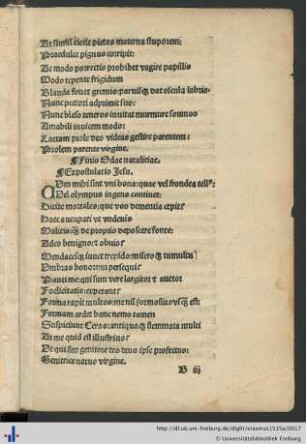 At simul eiecit pietas materna stuporem:
Praedulce pignus corripit:
Ac modo porrectis prohibet vagire papillis
Modo tepente frigidum
Blanda fouet gremio: paruisq3 dat oscula labris.
Nunc pectori adprimit suo:
Nunc blęso teneros inuitat murmure somnos
Amabili inuicem modo:
Laetam prole deo videas gestire parentem:
Prolem parente virgine.
¶Finis Odae natalitiae.
¶Expostulatio Jesu.
CUm mihi sint vni bona: quae vel frondea tellus
Vel olympus ingens continet:
Dicite mortales: que vos dementia cępit
Haec aucupari vt vndeuis
Malitis: de proprio deposcere fonte:
Adeo benigno: & obuio?
Mendacesq3 iuuet trepido: misero q3 tumultu
Umbras bonorum persequi?
Pauci me: qui sum vere largitor & auctor
Foelicitatis: expetant?
Forma rapit multos: me nil formosius vsq3 est:
Formam ardet hanc nemo tamen
Suspiciunt antiquaq3 stemmata multi
At me quid est illustrius?
De qui sim genitore deo deus ipse profectus:
Genitrice natus virgine.
B iij
http://dl.ub.uni-freiburg.de/diglit/erasmus1515a/0017
© Universitätsbibliothek Freiburg